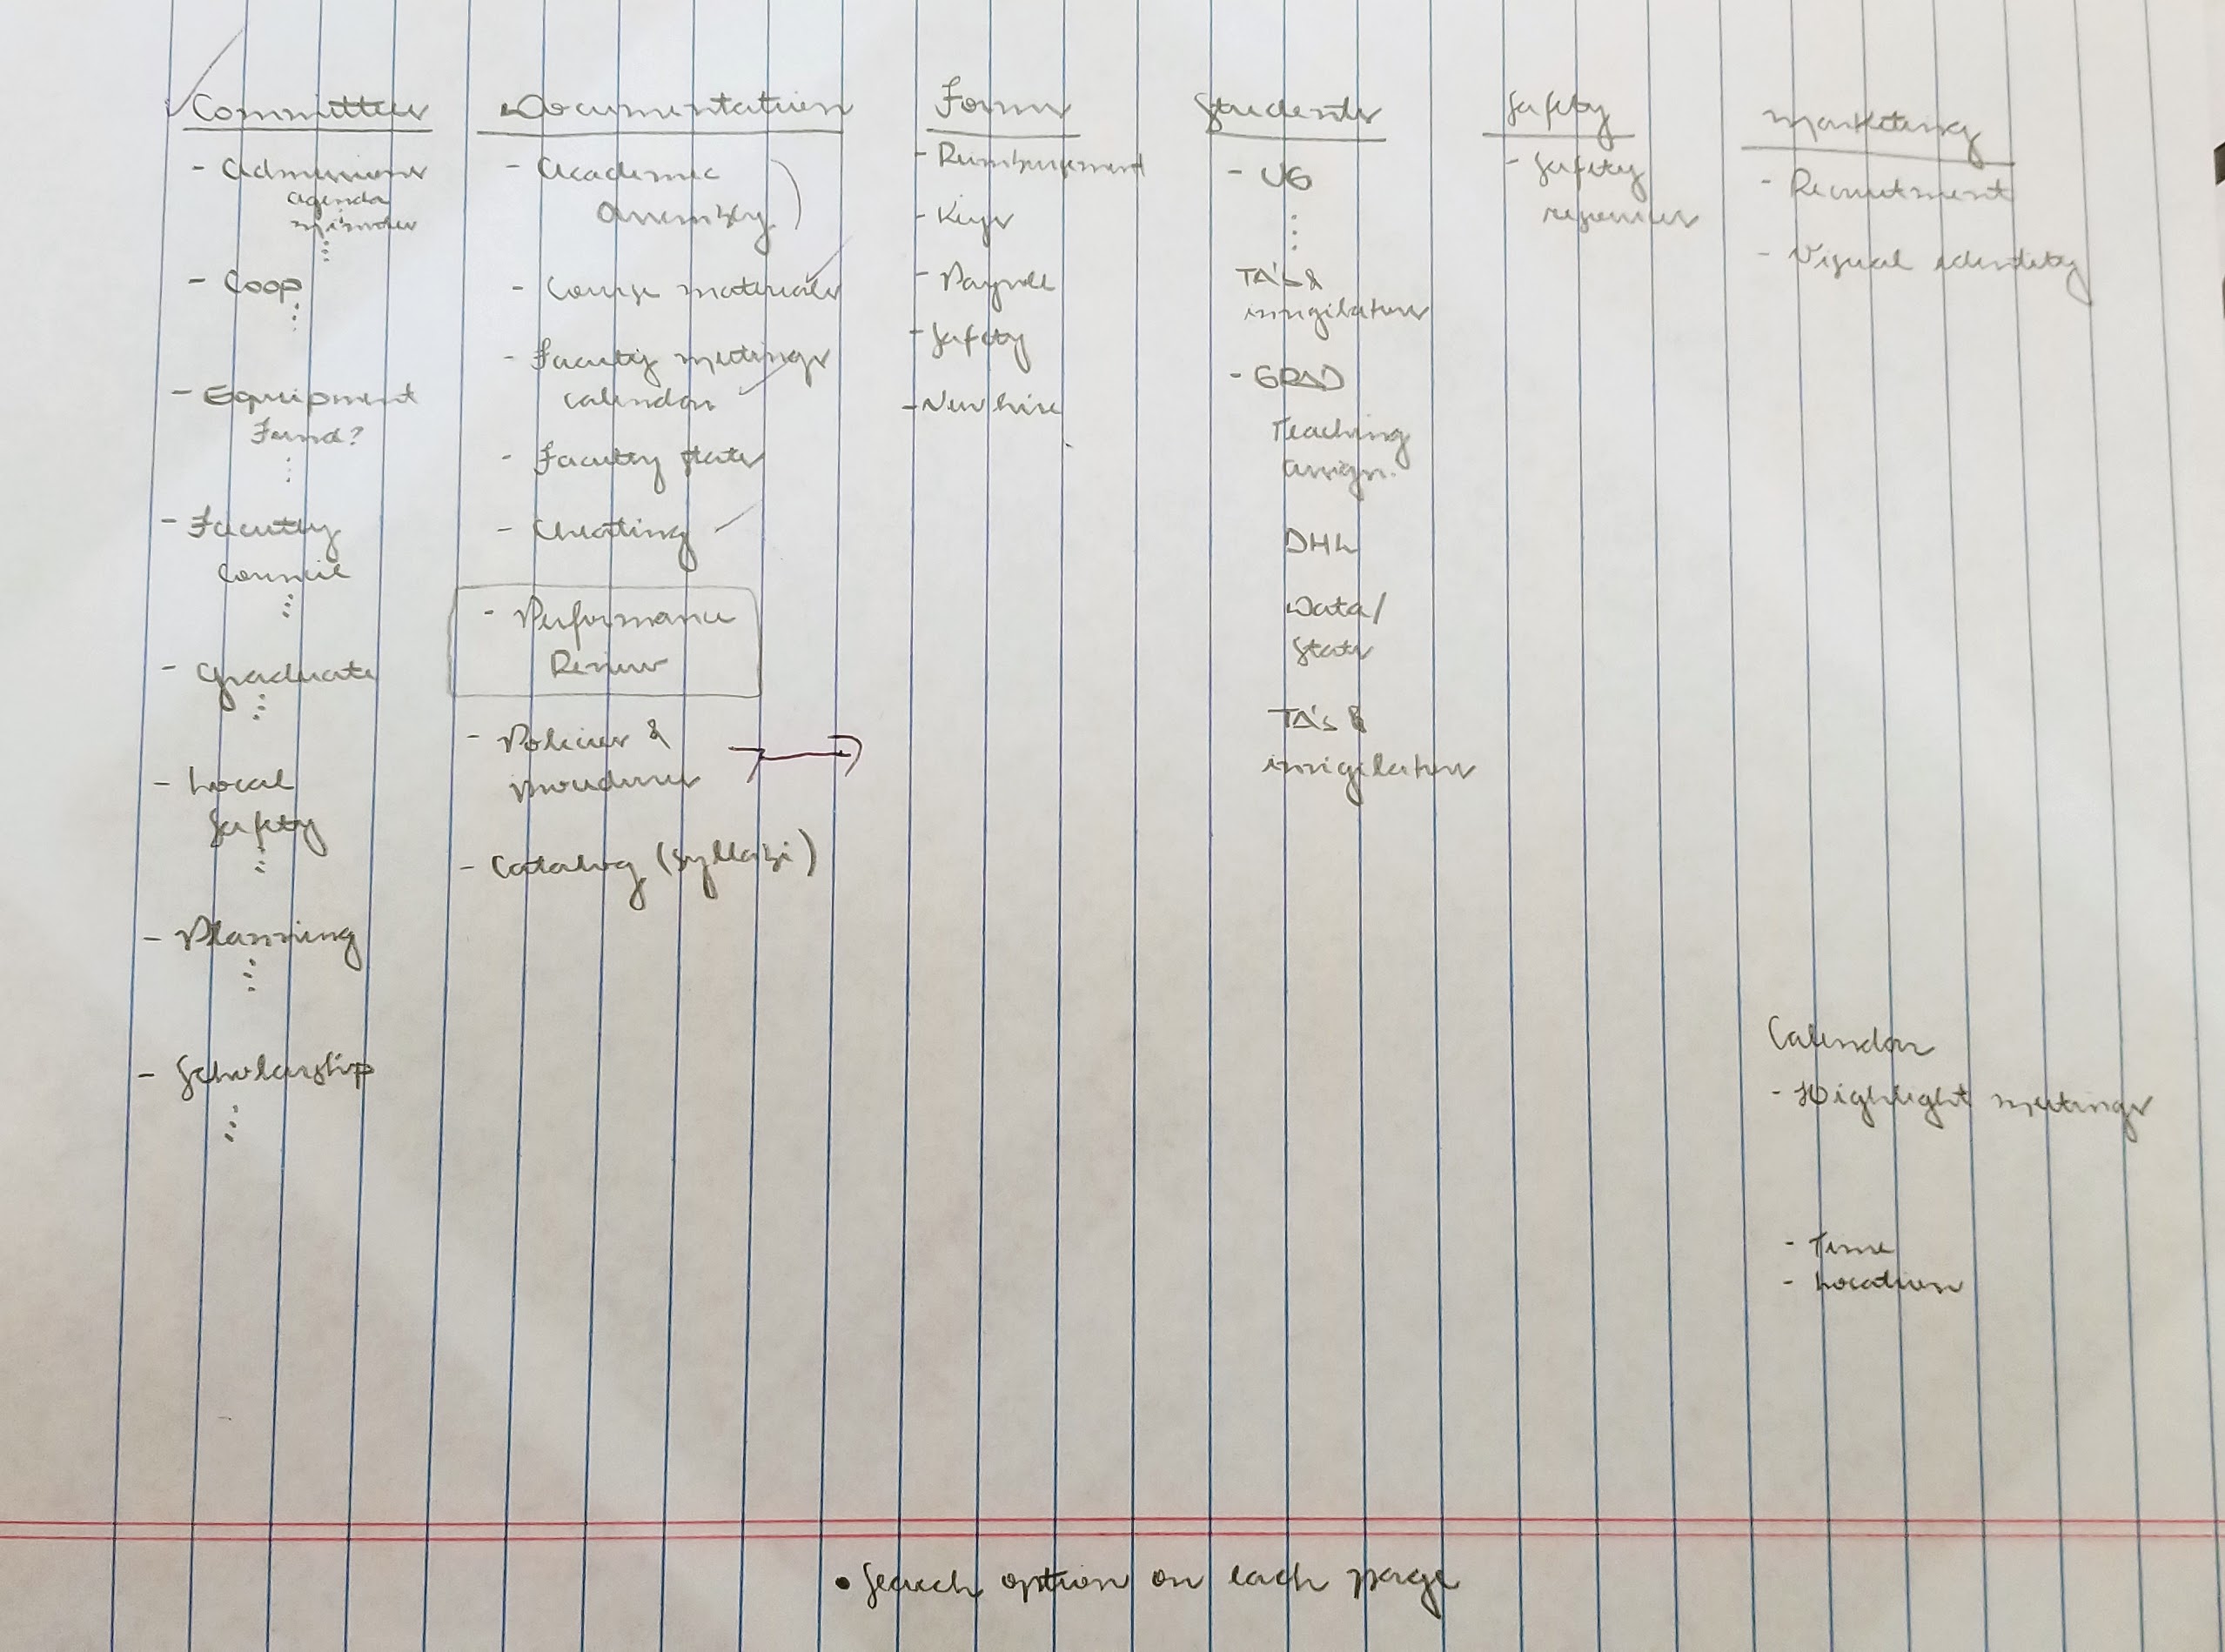 Committees
- Admissions
agenda
minutes
- Coop
- Equipment
Fund?
- Faculty
Council
- Graduate
- Local
Safety
- Planning
- Scholarship
Documentation
- Academic
Assembly
- Course materials
- Faculty meetings
calendar
- Faculty stats
- Cheating
- Performance
Review
- Policies &
procedures
- Catalog (syllabi)
Forms
- Reimbursement
- Keys
- Payroll
- Safety
- New hire
Students
- UG
TA's &
invigilators
- GRAD
Teaching
assign.
DHL
Data/
Stats
TA's &
invigilators
Safety
- Safety
resources
Marketing
- Recruitment
- Visual identity
Calendar
- Highlight meetings
- Time
- Location
• Search option on each page